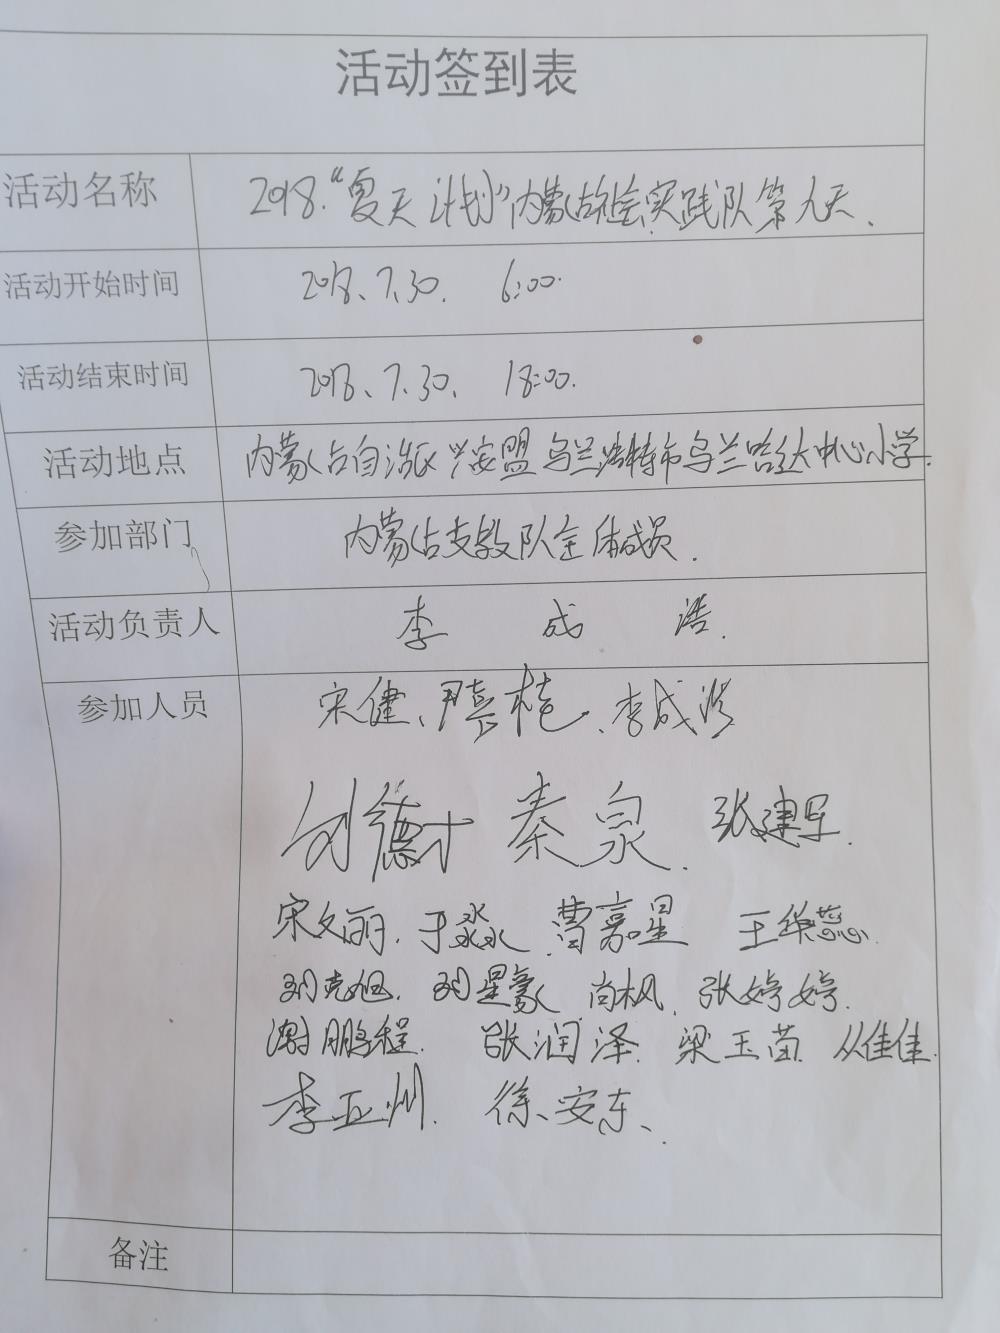 活动签到表
活动名称 2018.“夏天计划”内蒙古社会实践队第九天.
活动开始时间 2018、7.30. 6:00.
活动结束时间 2018、7.30. 18:00.
活动地点 内蒙古自治区兴安盟乌兰浩特市乌兰哈达中心小学.
参加部门 内蒙古支教队全体成员.
活动负责人 李成浩.
参加人员 宋健、尹嘉桅、李成浩
刘德才 秦泉. 张建军.
宋文丽. 于淼永 曹嘉星 王华蕊.
刘克旭. 刘星豪 尚枫. 张婷婷.
谢鹏程. 张润泽. 梁玉苗. 从佳佳.
李亚州. 徐安东、.
备注